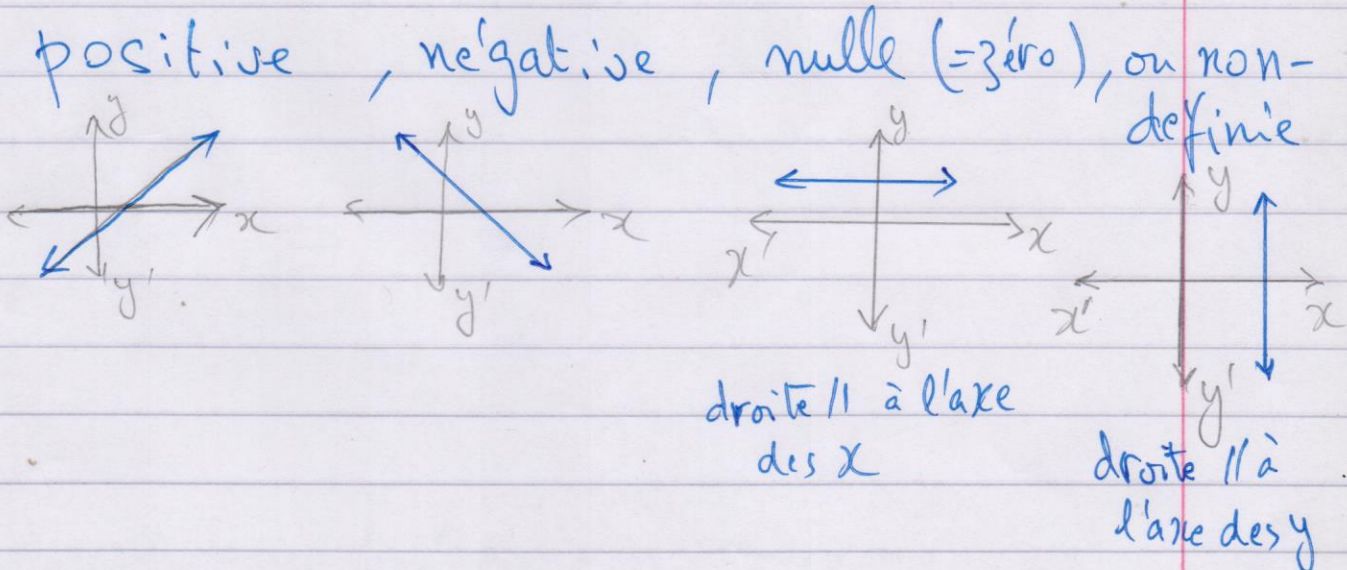 positive, négative, nulle (=zéro), ou non-
definie
y
y
y
y
x
x
x'
x
x'
x
y'
y'
y'
y'
droite // à l'axe
des x
droite // à
l'axe des y